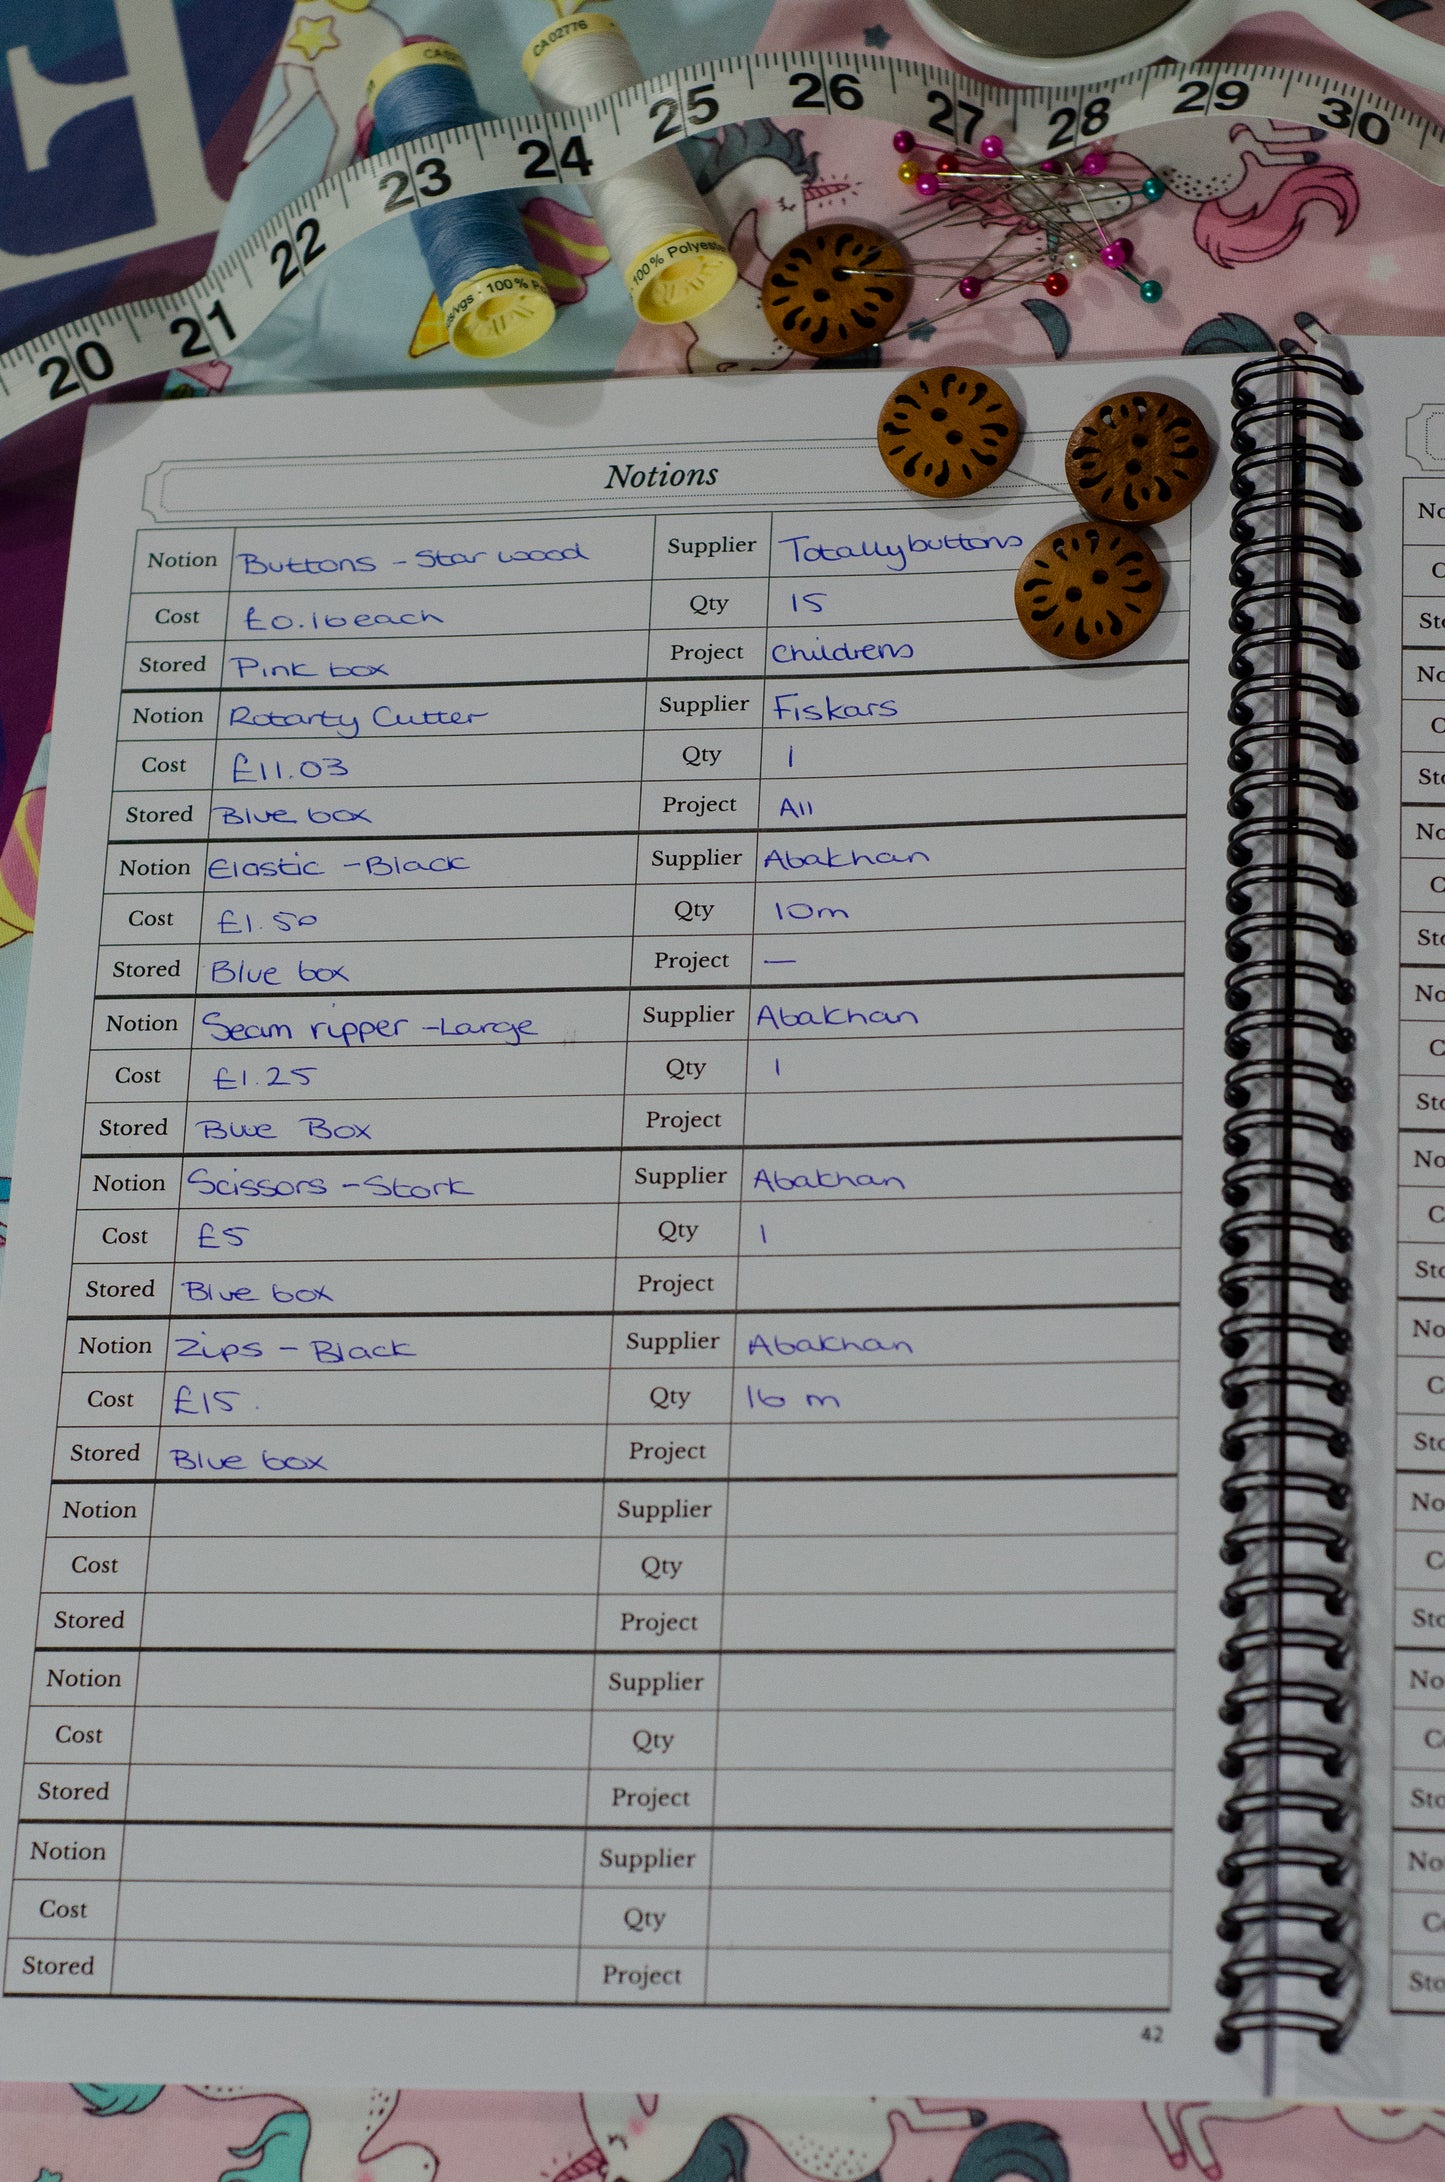 E
CA02776
20 21 22 23 24 25 26 27 28 29 30
100% Polyes
100% P
Notions
Notion Buttons - Star wood Supplier Totallybuttons
Cost £0.16 each Qty 15
Stored Pink box Project Childrens
Notion Rotarty Cutter Supplier Fiskars
Cost £11.03 Qty 1
Stored Blue box Project All
Notion Elastic - Black Supplier Abakhan
Cost £1.50 Qty 10m
Stored Blue box Project —
Notion Seam ripper - Large Supplier Abakhan
Cost £1.25 Qty 1
Stored Blue Box Project
Notion Scissors - Stork Supplier Abakhan
Cost £5 Qty 1
Stored Blue box Project
Notion Zips - Black Supplier Abakhan
Cost £15. Qty 16 m
Stored Blue box Project
Notion Supplier
Cost Qty
Stored Project
Notion Supplier
Cost Qty
Stored Project
Notion Supplier
Cost Qty
Stored Project
42